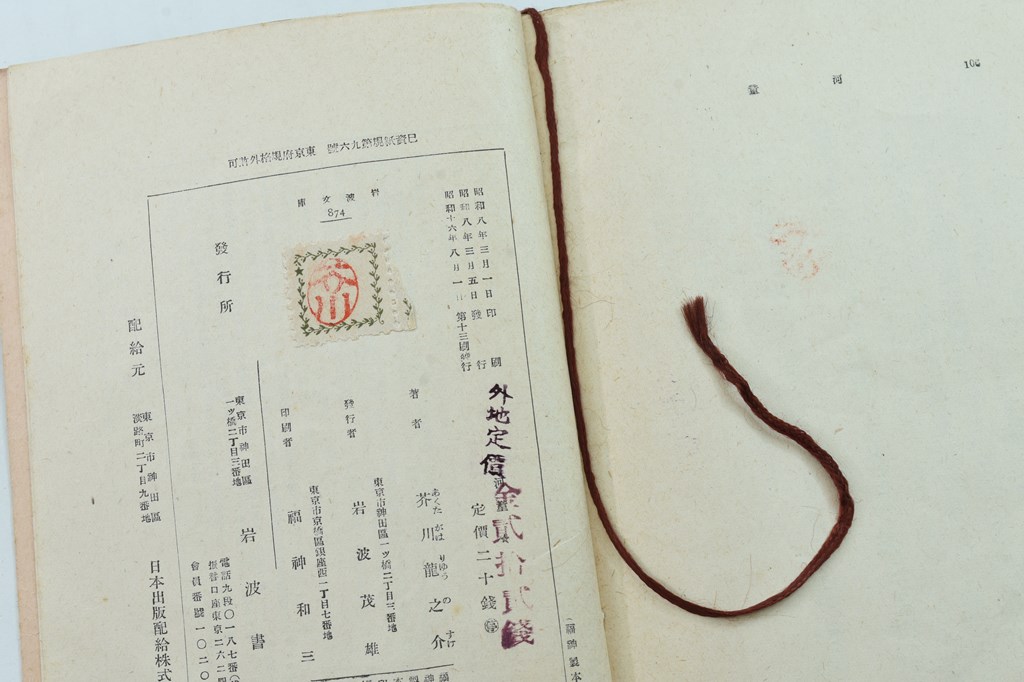 106
河童
岩波文庫
874
昭和八年三月一日印
昭和八年三月五日發行
昭和十六年八月一日第十三刷
外地定價金貳拾貳錢
定價二十錢
著者
芥川龍之介
あくたがはりゆうのすけ
東京市神田區一ツ橋二丁目三番地
發行者
岩波茂雄
東京市京橋區銀座西一丁目七番地
福神和三
發行所
東京市神田區
一ツ橋二丁目三番地
岩波書
電話九段〇一八七番
振替口座東京二六二
會員番號一〇二〇
配給元
東京市神田區
淡路町二丁目九番地
日本出版配給株式